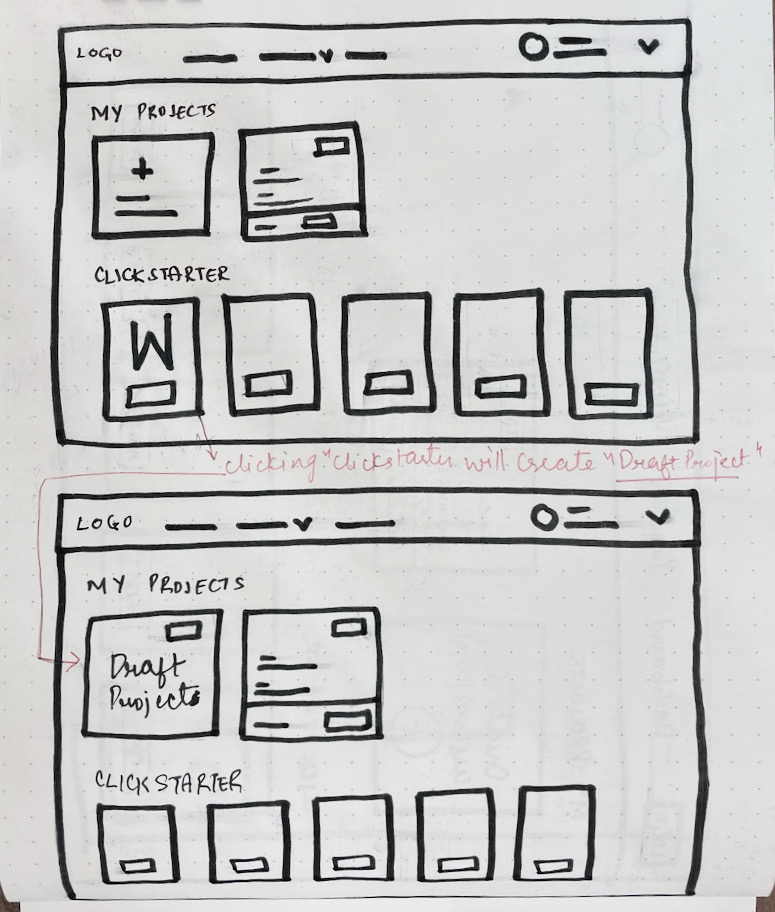 LOGO
MY PROJECTS
+
CLICKSTARTER
W
clicking "Clickstarter will create "Draft Project."
LOGO
MY PROJECTS
Draft
Projects
CLICKSTARTER